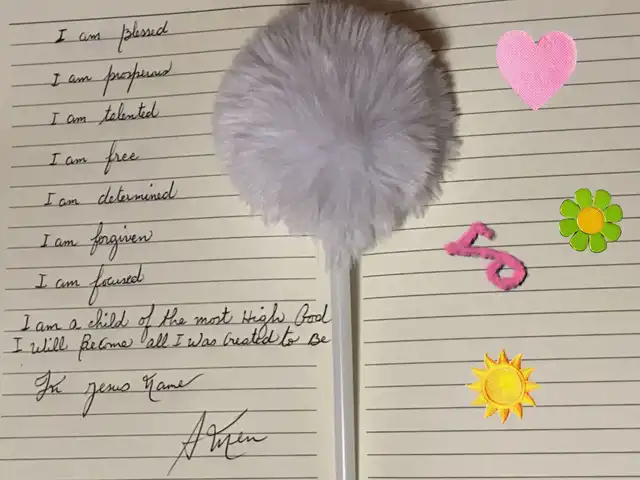 I am Blessed
I am prosperous
I am talented
I am free
I am determined
I am forgiven
I am focused
I am a child of the most High God
I will Become all I was created to Be
In Jesus Name
Amen